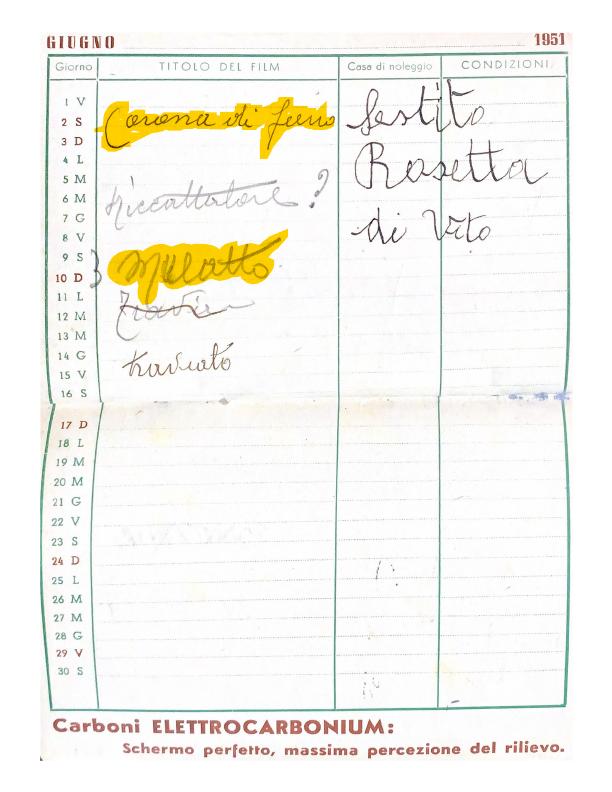 GIUGNO 1951
Giorno TITOLO DEL FILM Casa di noleggio CONDIZIONI
1 V
2 S Corona di ferro festito
3 D
4 L Rosetta
5 M
6 M Riccattatore ?
7 G di Vito
8 V
9 S
10 D Mulatto
11 L
12 M
13 M
14 G traviato
15 V
16 S
17 D
18 L
19 M
20 M
21 G
22 V
23 S
24 D
25 L
26 M
27 M
28 G
29 V
30 S
Carboni ELETTROCARBONIUM:
Schermo perfetto, massima percezione del rilievo.